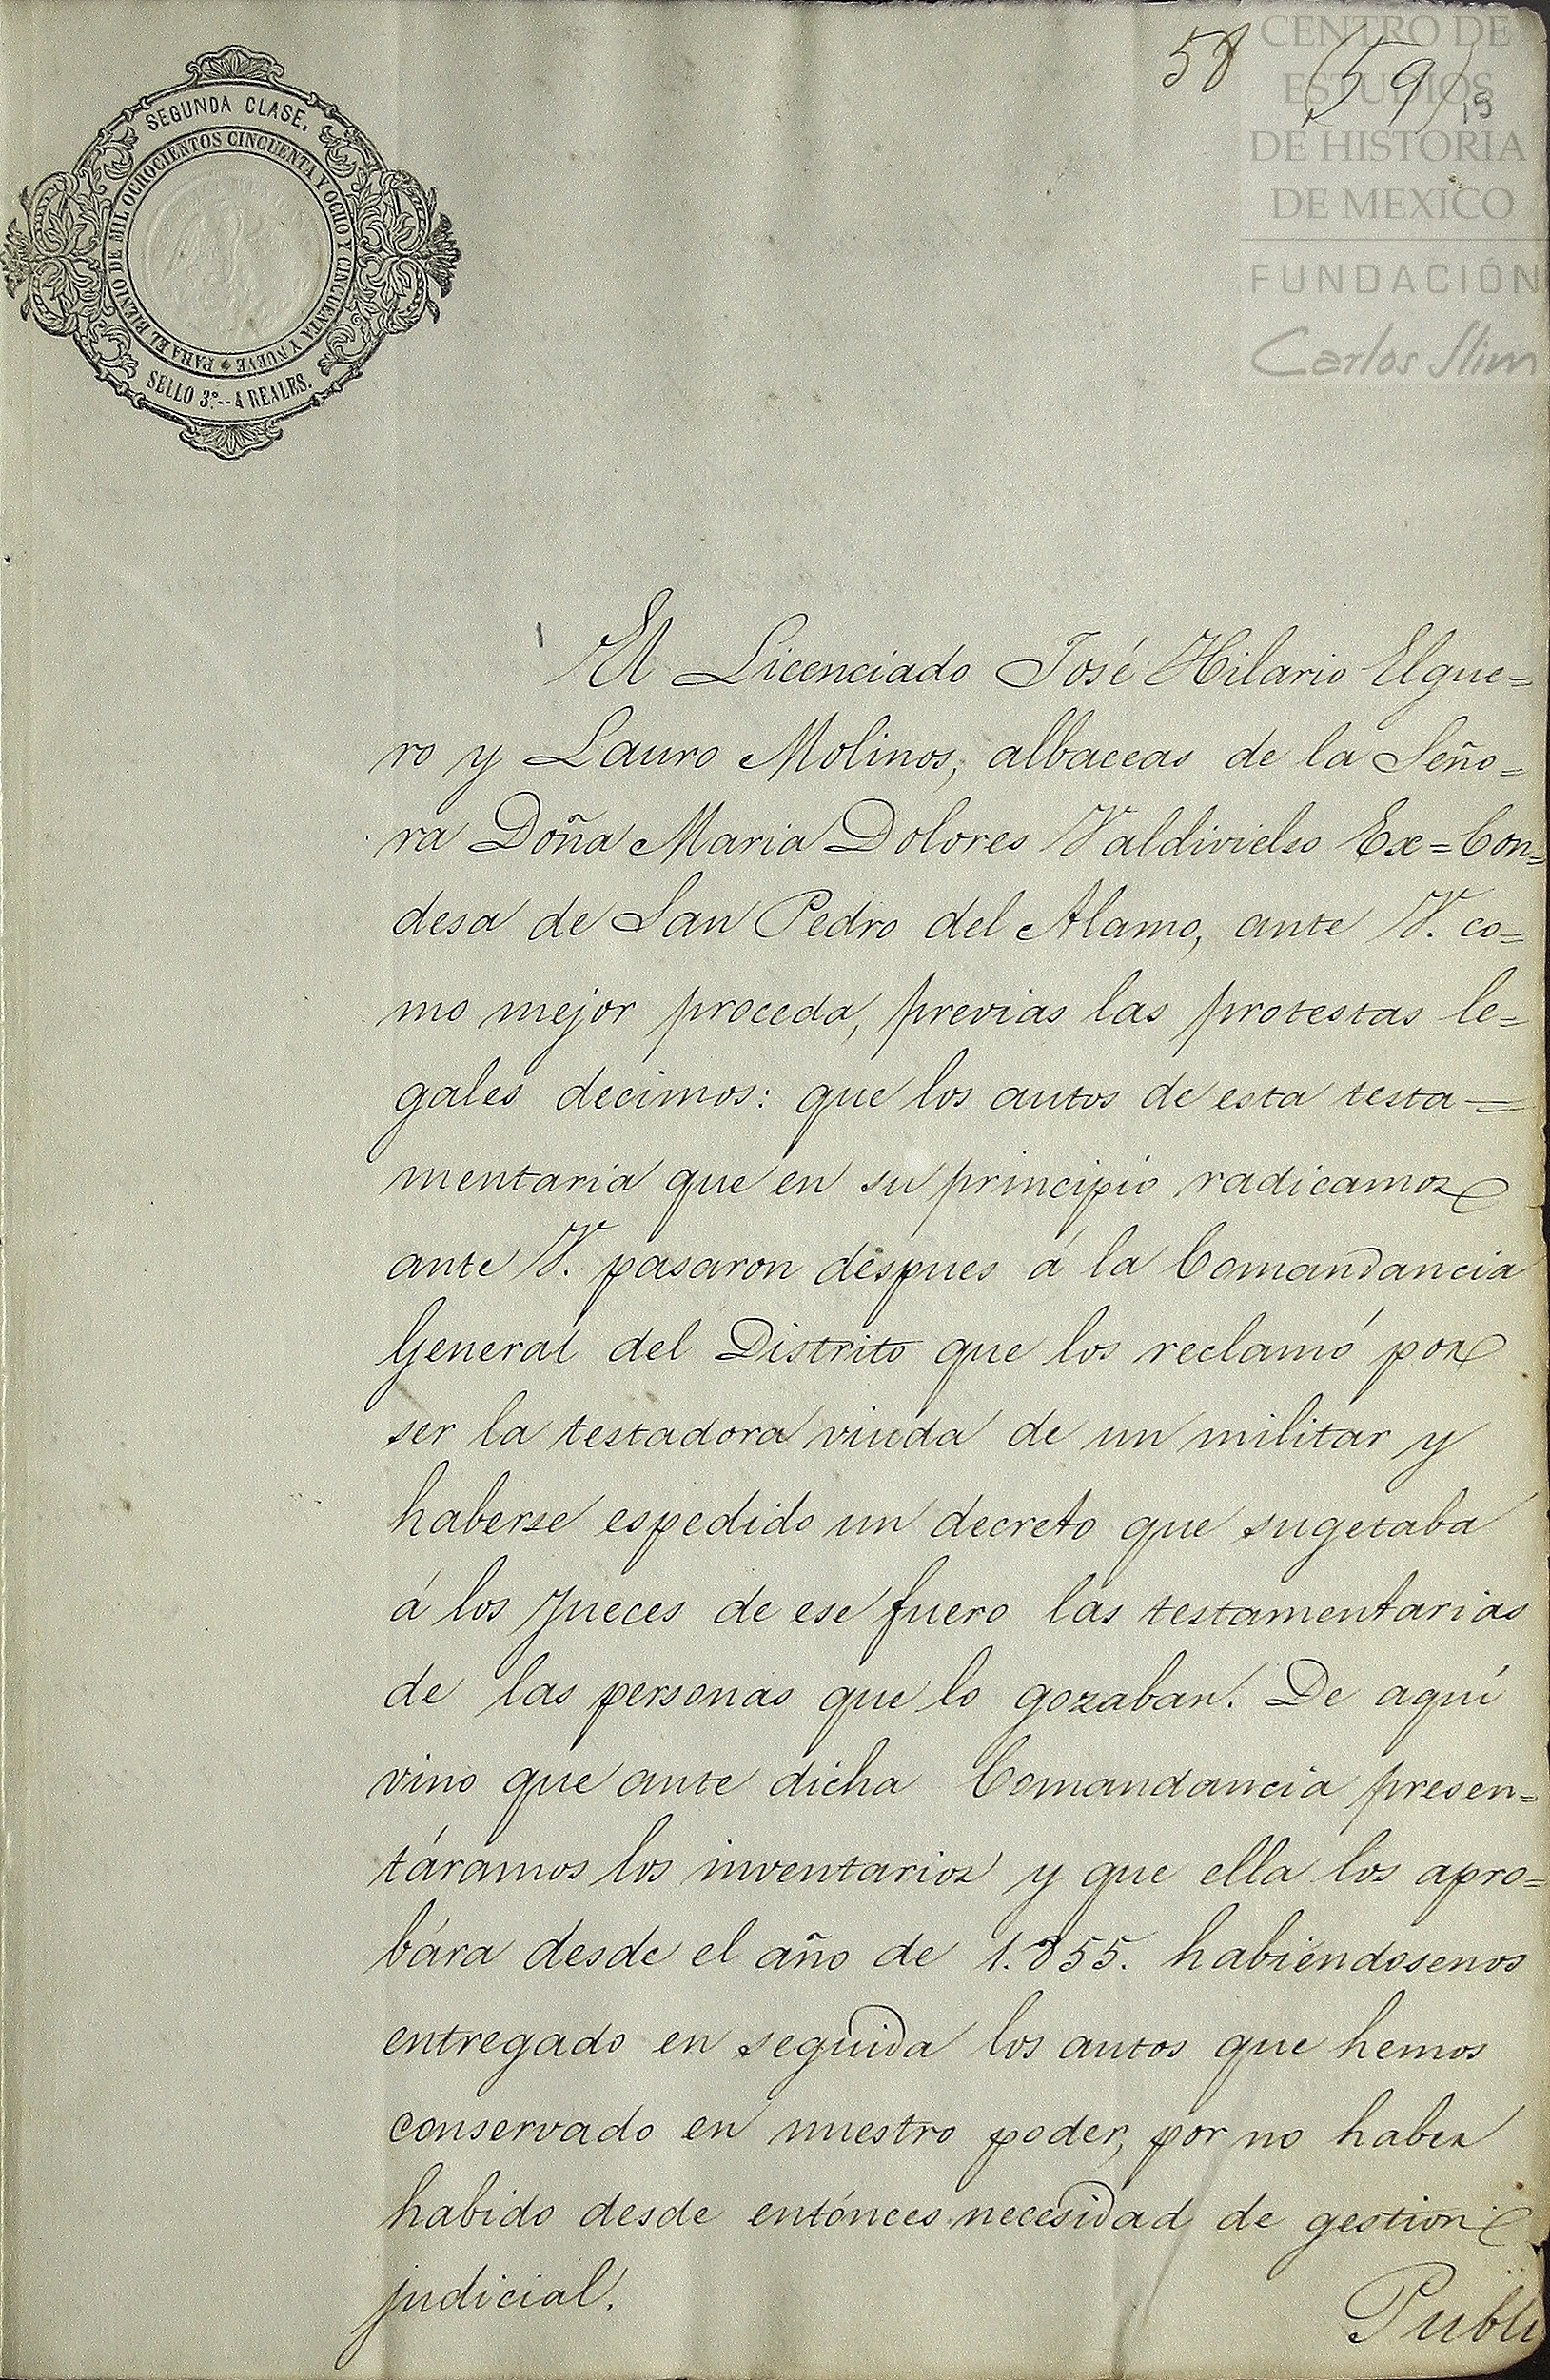 58 (59) 19
CENTRO DE
ESTUDIOS
DE HISTORIA
DE MEXICO
FUNDACIÓN
Carlos Slim
SEGUNDA CLASE.
PARA EL BIENIO DE MIL OCHOCIENTOS CINCUENTA Y OCHO Y CINCUENTA Y NUEVE
SELLO 3º.--4 REALES.
El Licenciado José Hilario Elgue=
ro y Lauro Molinos, albaceas de la Seño=
ra Doña Maria Dolores Valdivielso Ex=Con=
desa de San Pedro del Alamo, ante V. co=
mo mejor proceda, previas las protestas le=
gales decimos: que los autos de esta testa=
mentaria que en su principio radicamos
ante V. pasaron despues á la Comandancia
General del Distrito que los reclamó por
ser la testadora viuda de un militar y
haberse espedido un decreto que sugetaba
á los Jueces de ese fuero las testamentarias
de las personas que lo gozaban. De aquí
vino que ante dicha Comandancia presen=
táramos los inventarios y que ella los apro=
bára desde el año de 1.855. habiéndosenos
entregado en seguida los autos que hemos
conservado en nuestro poder, por no haber
habido desde entónces necesidad de gestion
judicial.
Publi